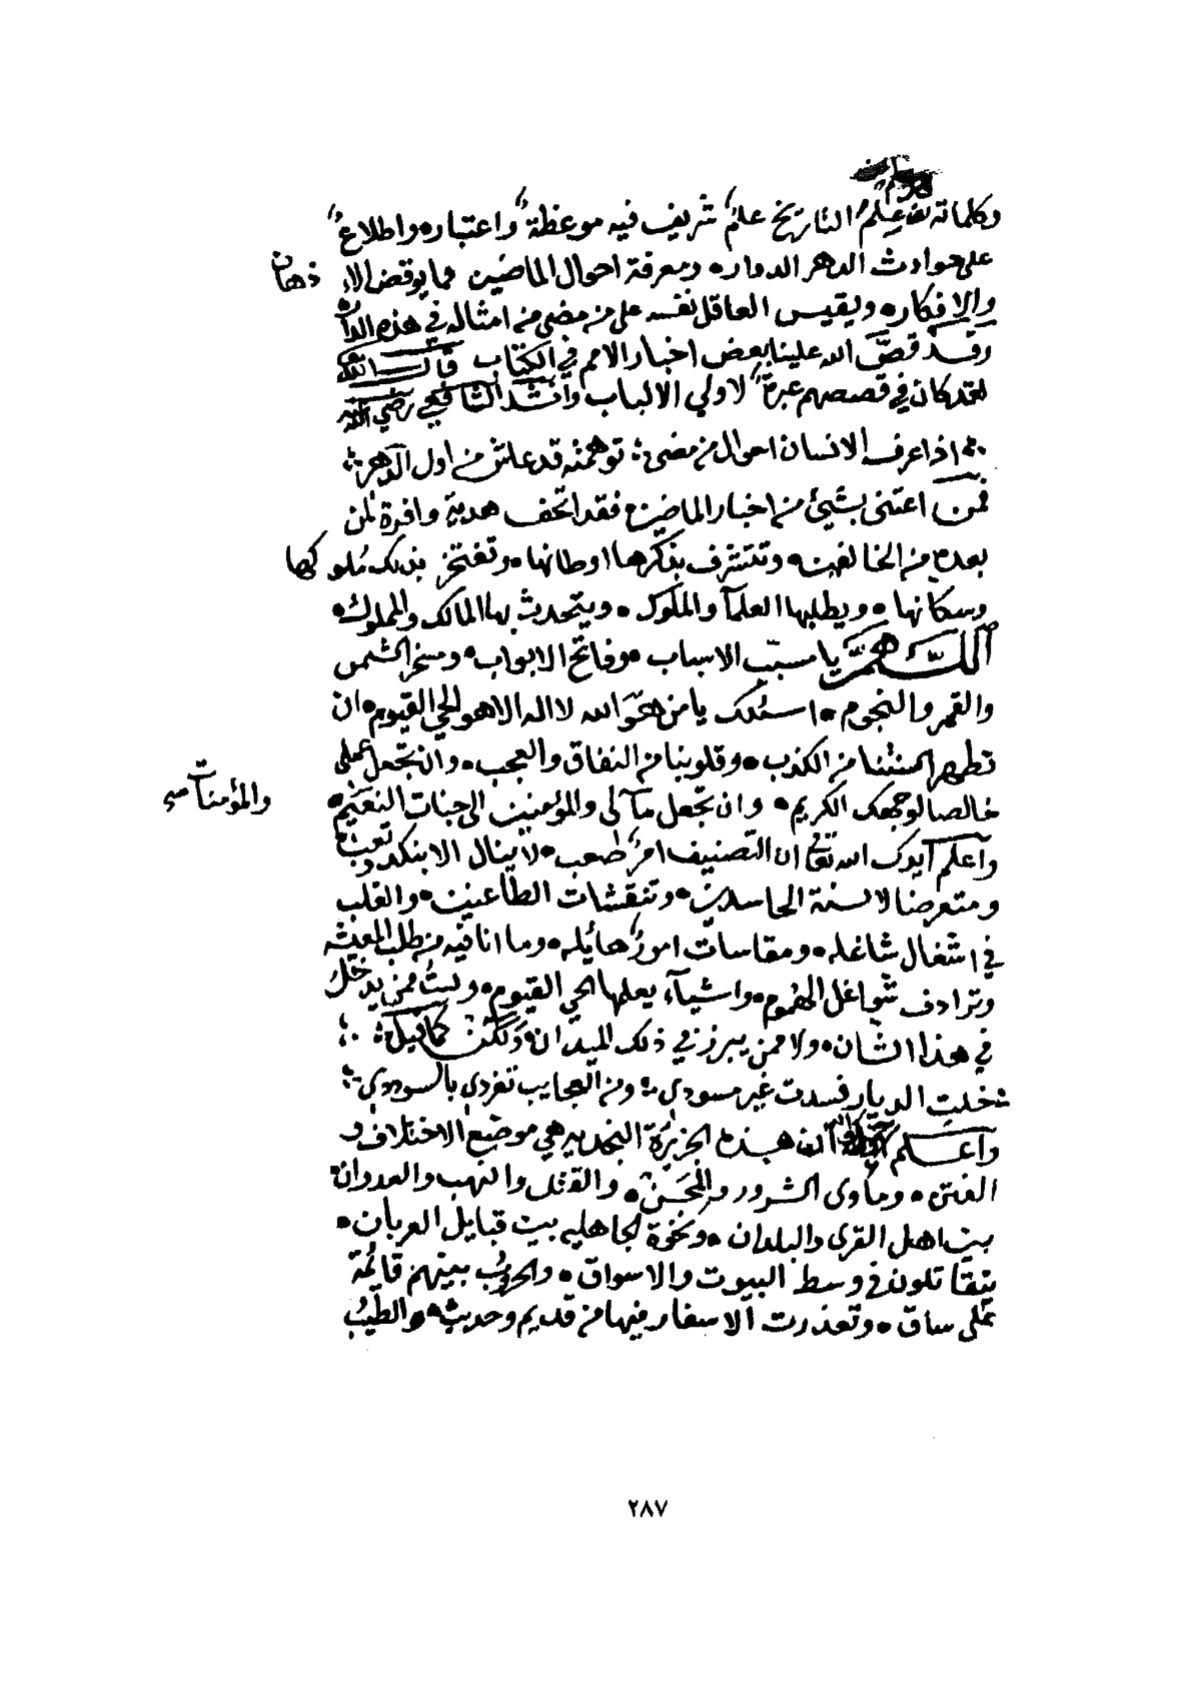 وكلماته علم التاريخ علمٌ شريف فيه موعظةٌ واعتبار واطلاعٌ
على حوادث الدهر الدوار ومعرفة احوال الماضين مما يوقض الا ذهان
والافكار ويقيس العاقل نفسه على من مضى من امثاله في هذه الدار
وقد قصَّ الله علينا بعض اخبار الامم في الكتاب قال الله تعالى
لقد كان في قصصهم عبرةٌ لاولي الالباب وانشد الشافعي رضي الله عنه
اذا عرف الانسان احوال من مضى توهمته قد عاش من اول الدهر
فمن اعتنى بشيئ من اخبار الماضين فقد اتحف هدية وافرة لمن
بعده من الخالفين وتتشرف بذكرها اوطانها وتفتخر بذلك ملوكها
وسكانها ويطلبها العلمآ والملوك ويتحدث بها المالك والمملوك
اللهم يا مسبّب الاسباب وفاتح الابواب ومسخر الشمس
والقمر والنجوم اسئلك يا من هو الله لا اله الا هو الحي القيوم ان
تطهر السنتنا من الكذب وقلوبنا من النفاق والعجب وان تجعل عملي
خالصا لوجهك الكريم وان تجعل مآلي والمؤمنين الى جنات النعيم
والمؤمنات صح
واعلم ايدك الله تعالى ان التصنيف امرٌ صعب لا ينال الا بنكد وتعب
ومتعرضا لالسنة الحاسدين وتنقشات الطاعنين والقلب
في اشغال شاغله ومقاسات امورٌ هائله وما انا فيه من طلب المعيشه
وترادف شواغل الهموم واشيآء يعلمها الحي القيوم ولستُ ممن يدخل
في هذا الشان ولا ممن يبرز في ذلك الميدان ولكن كما قيل
خلت الديار فسدت غير مسودي ومن العجايب تفردي بالسوددي
واعلم ان هذه الجزيرة النجديه هي موضع الاختلاف و
الفتن ومأوى الشرور والمحن والقتل والنهب والعدوان
بين اهل القرى والبلدان ونخوة الجاهليه بين قبايل العربان
يتقاتلون في وسط البيوت والاسواق والحروب بينهم قائمة
على ساق وتعذرت الاسفار فيها من قديم وحديث والطيب
٢٨٧